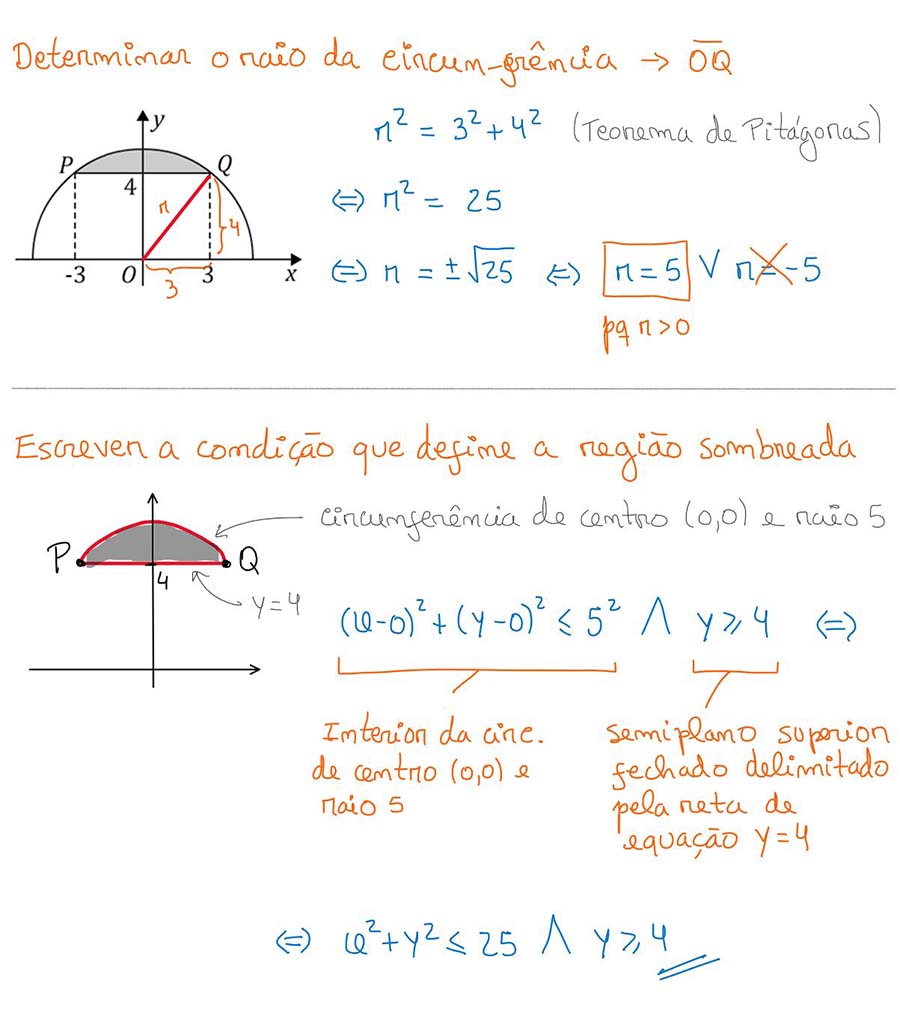 Determinar o raio da circunferência → O̅Q̅
y
P
Q
4
r
4
-3
O
3
x
3
r² = 3² + 4² (Teorema de Pitágoras)
⇔ r² = 25
⇔ r = ±√25 ⇔ r = 5 ∨ r = -5
pq r > 0
Escrever a condição que define a região sombreada
circunferência de centro (0,0) e raio 5
P
Q
4
y = 4
(x-0)² + (y-0)² ≤ 5² ∧ y ≥ 4 ⇔
Interior da circ.
de centro (0,0) e
raio 5
semiplano superior
fechado delimitado
pela reta de
equação y = 4
⇔ x² + y² ≤ 25 ∧ y ≥ 4